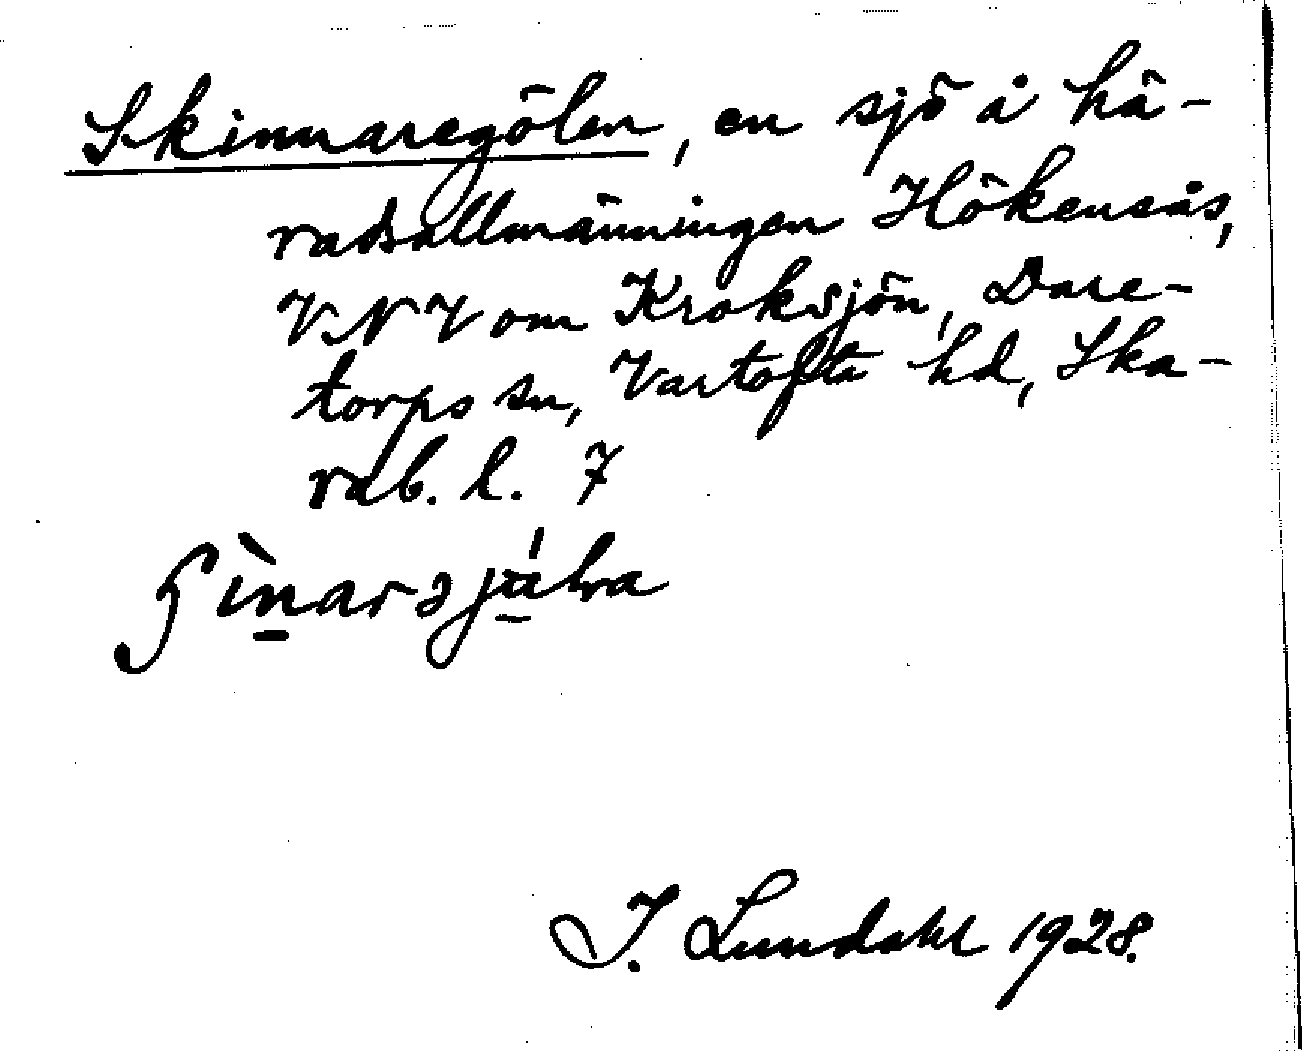 Skinnaregölen, en sjö å hä-
radsallmänningen Hökensås,
VNV om Kroksjön, Dare-
torps sn, Vartofta hd, Ska-
rab. l. 7
I. Lundahl 1928.